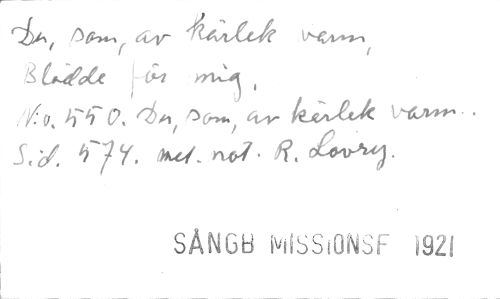 Du, som, av kärlek varm,
Blödde för mig,
N:o. 550. Du, som, av kärlek varm..
Sid. 574. mel. not. R. Lovry.
SÅNGB MISSIONSF 1921